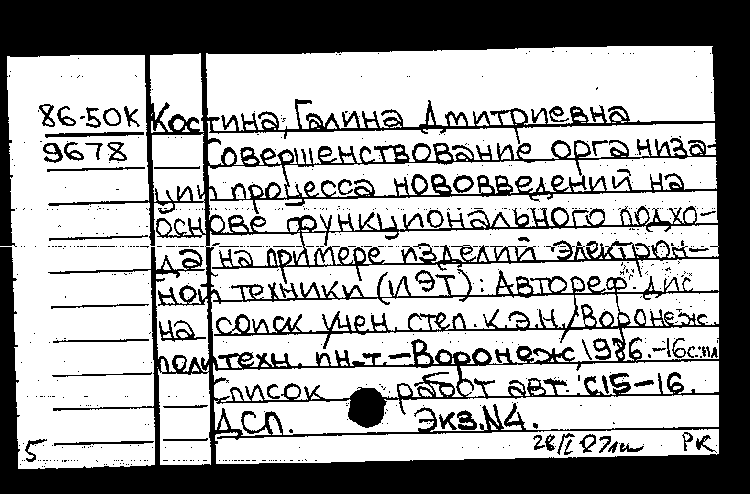 86-50К Костина, Галина Дмитриевна.
9678 Совершенствование организа-
ции процесса нововведений на
основе функционального подхо-
да (на примере изделий электрон-
ной техники (ИЭТ): Автореф. дис
на соиск. учен. степ. к.э.н./Воронеж.
политехн. ин-т.-Воронеж, 1986.-16с.
Список работ авт. с.15-16.
ДСП. Экз.N4.
5 РК